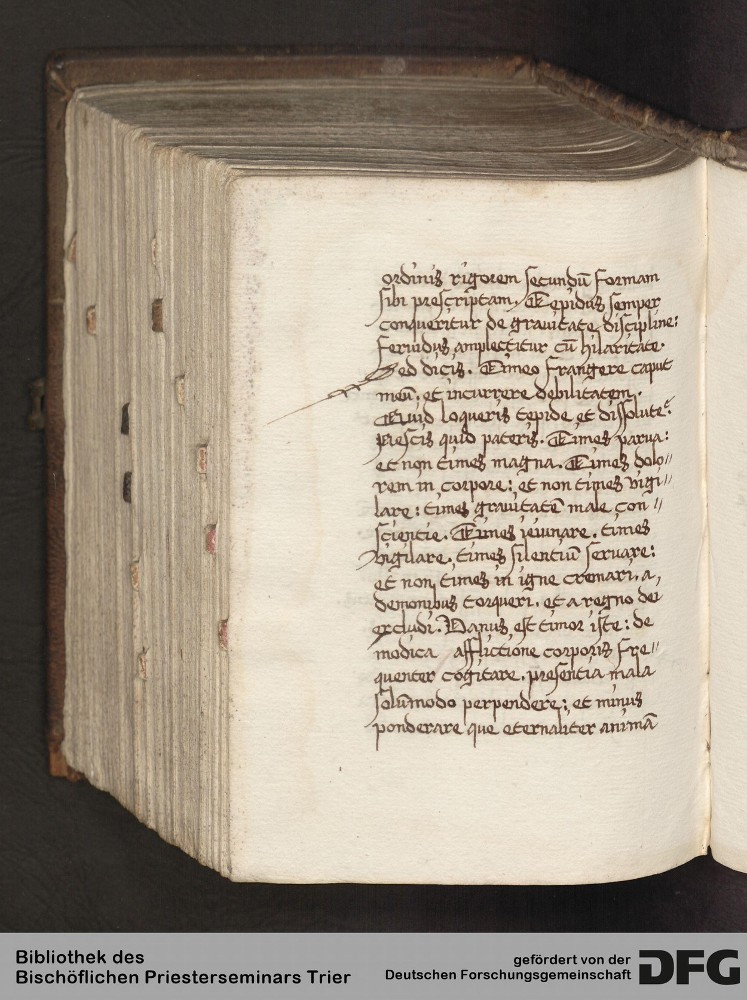 ordinis rigorem secundū formam
sibi prescriptam. Tepidus semper
conqueritur de grauitate discipline:
feruidus amplectitur cū hilaritate.
Sed dicis. Timeo frangere caput
meū: et incurrere debilitatem.
Quid loqueris tepide et dissolute?
Nescis quid pateris. Times parua:
et non times magna. Times dolo//
rem in corpore: et non times vigi//
lare: times grauitatē male con//
scientie. Times ieiunare. times
vigilare. times silentiū seruare:
et non times in igne cremari. a,
demonibus torqueri. et a regno dei
excludi. Vanus est timor iste: de
modica afflictione corporis fre//
quenter cogitare. presentia mala
solūmodo perpendere: et minus
ponderare que eternaliter animā
Bibliothek des
Bischöflichen Priesterseminars Trier
gefördert von der
Deutschen Forschungsgemeinschaft
DFG